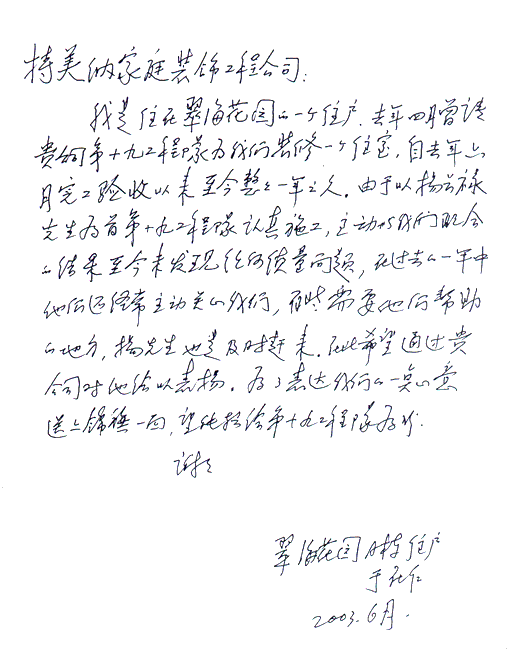 特美纳家庭装饰工程公司:
我是住在翠海花园的一个住户,去年四月曾请
贵司第十九工程队为我们装修一个住宅,自去年六
月完工验收以来至今整整一年之久。由于以杨云禄
先生为首第十九工程队认真施工,主动与我们配合
的结果至今未发现任何质量问题,在过去的一年中
他们还经常主动关心我们,有些需要他们帮助
的地方,杨先生也是及时赶来。在此希望通过贵
公司对他给以表扬。为了表达我们的一点心意
送上锦旗一面,望转给第十九工程队为盼.
谢谢
翠海花园 栋住户
于
2003.6月.